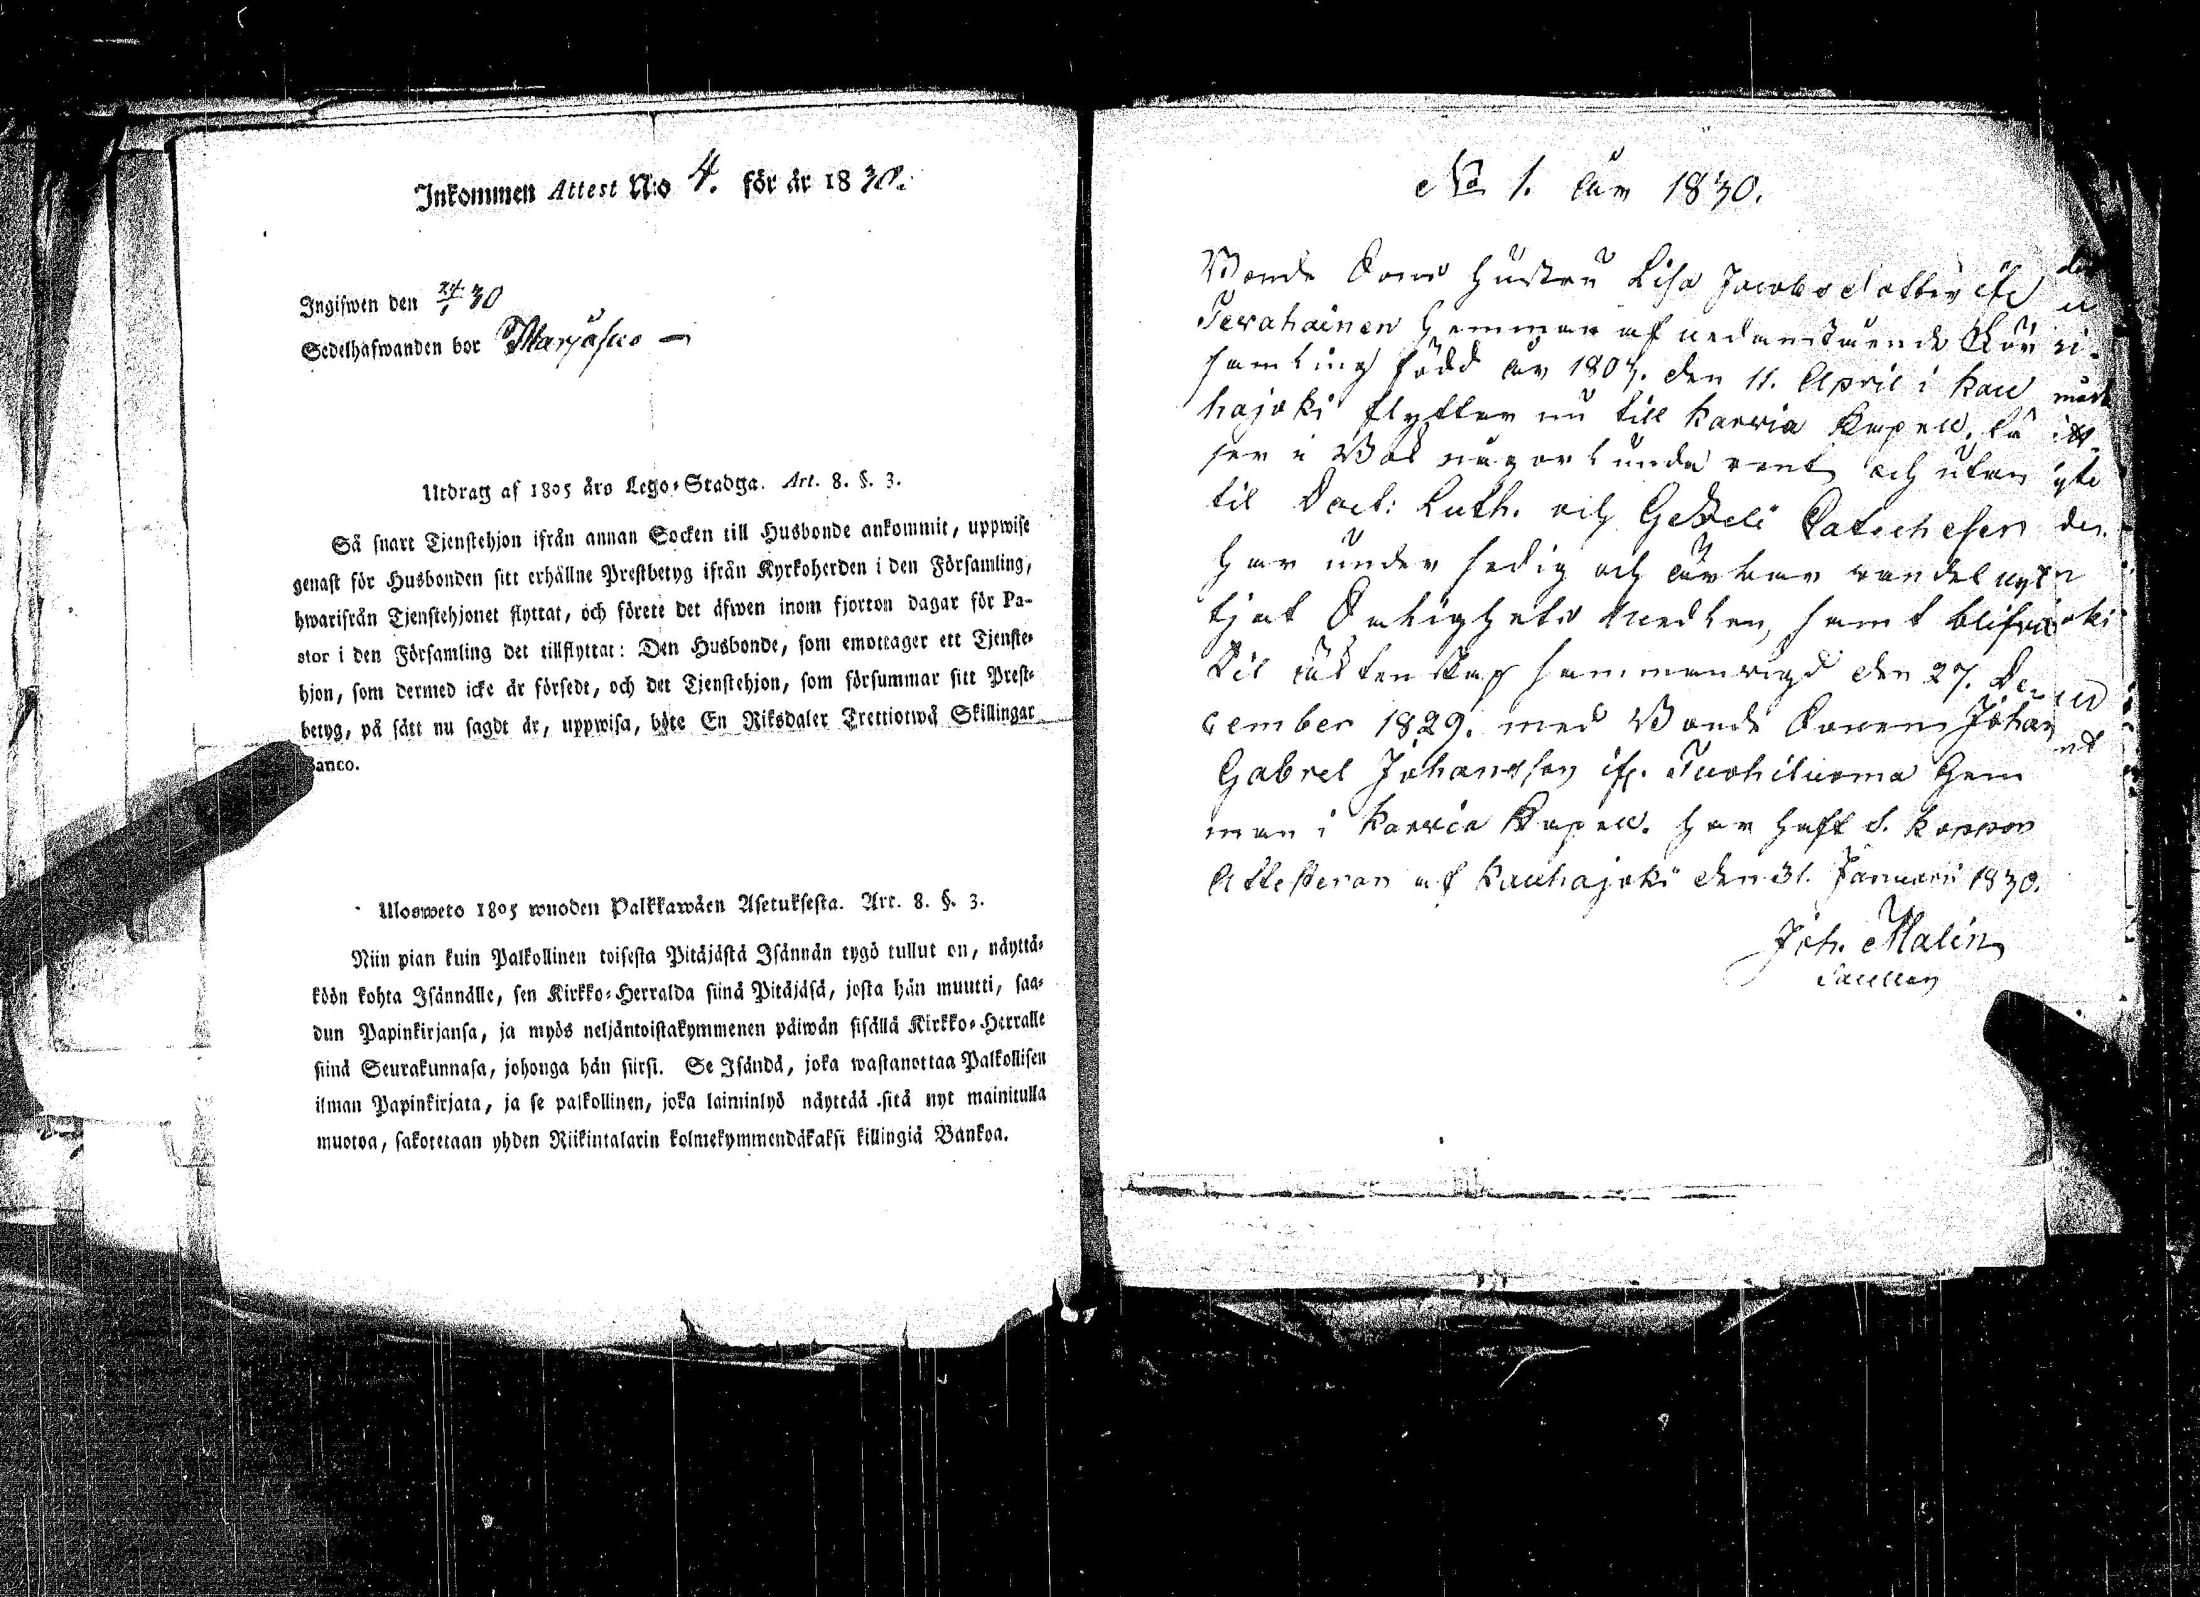 Inkommen Attest N:o 4. för år 1830.
Ingifwen den 24/1 30
Sedelhafwanden bor
Utdrag af 1805 års Lego-Stadga. Art. 8. §. 3.
Så snart Tjenstehjon ifrån annan Socken till Husbonde ankommit, uppwise
genast för Husbonden sitt erhållne Prestbetyg ifrån Kyrkoherden i den Församling,
hwarifrån Tjenstehjonet flyttat, och förete det äfwen inom fjorton dagar för Pa-
stor i den Församling det tillflyttat: Den Husbonde, som emottager ett Tjenste-
hjon, som dermed icke är försedt, och det Tjenstehjon, som försummar sitt Prest-
betyg, på sätt nu sagdt är, uppwisa, böte En Riksdaler Trettiotwå Skillingar
Banco.
Ulosweto 1805 wuoden Palkkawäen Asetuksesta. Art. 8. §. 3.
Niin pian kuin Palkollinen toisesta Pitäjästä Isännän tygö tullut on, näyttä-
köön kohta Isännälle, sen Kirkko-Herralda siinä Pitäjäsä, josta hän muutti, saa-
dun Papinkirjansa, ja myös neljäntoistakymmenen päiwän sisällä Kirkko-Herralle
siinä Seurakunnasa, johonga hän siirsi. Se Isändä, joka wastanottaa Palkollisen
ilman Papinkirjata, ja se palkollinen, joka laiminlyö näyttää sitä nyt mainitulla
muotoa, sakotetaan yhden Riikintalarin kolmekymmendäkaksi killingiä Bankoa.
No 1. år 1830.
Bonde Sons Hustru Lisa Jacobsdotter ifr
Hemman af nedanstående För
samling född år 1807. den 11. April i Kau
hajoki flyttar nu till Karvia Kapell, lä
ser i Bok någorlunda rent och utan
til Doct: Luth. och Gezelii Catechesen
har under sedig och ärbar vandel nyt
tjat Salighets Medlen, samt blifvit
til äktenskap sammanvigd den 27. De
cember 1829. med Bonde Sonen Johan
Gabriel Johansson ifr. Tuohiluoma Hem
man i Karvia Kapell. har haft s. koppor
Attesteras af Kauhajoki den 31. Januarii 1830.
Joh. Malin